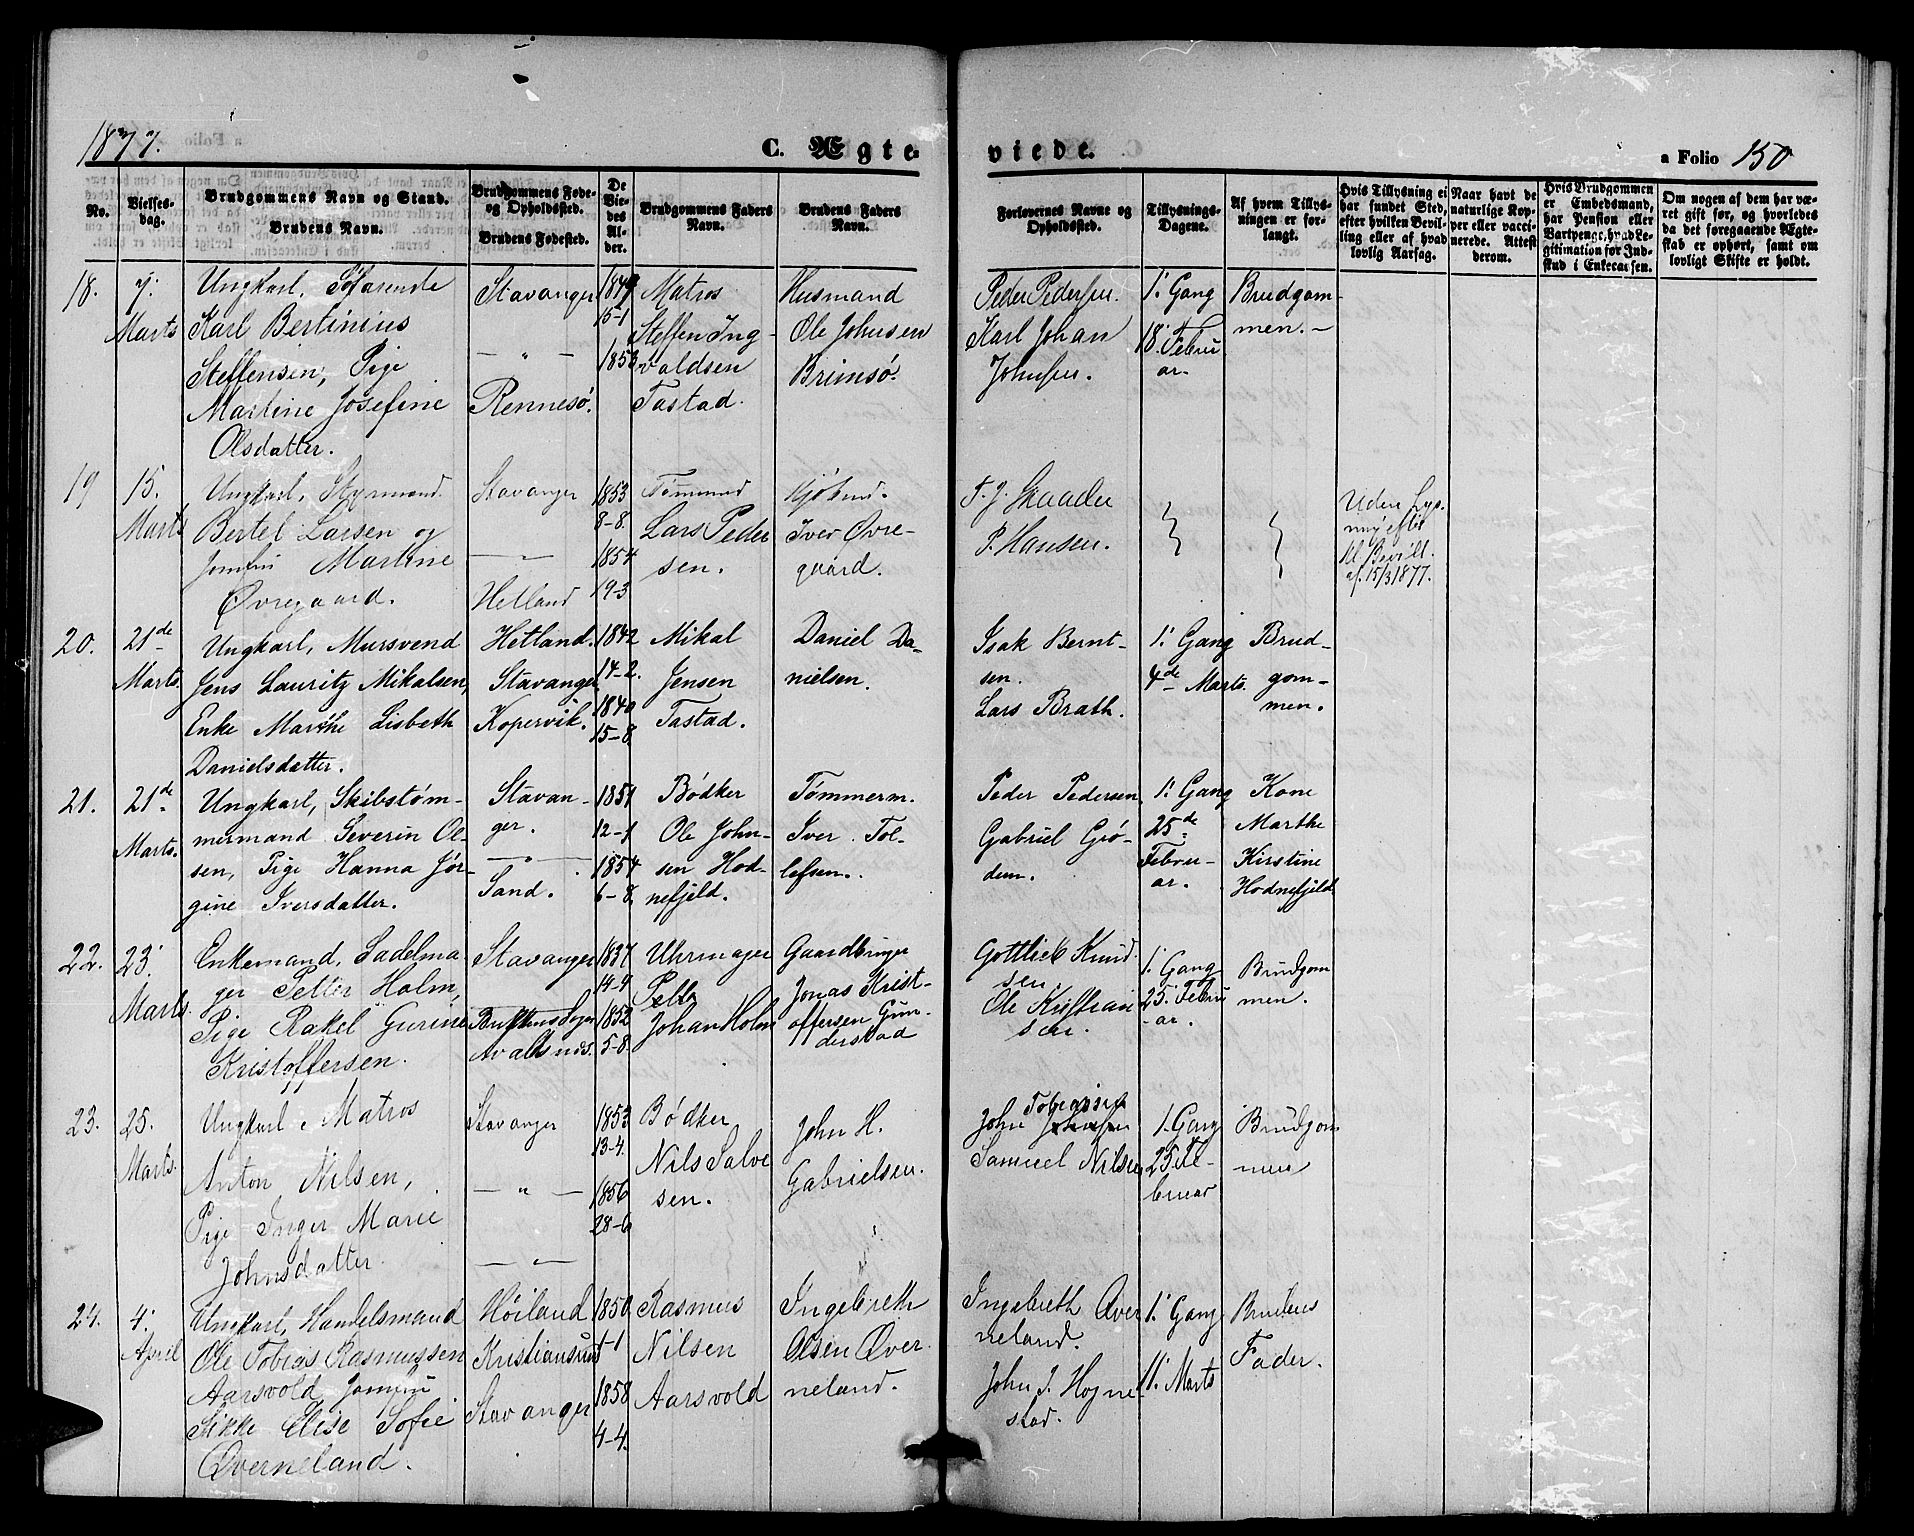 1877.
C. Ægte-
viede.
a Folio 150
No.
Vielses-
dag.
Brudgommens Navn og Stand.
Brudens Navn.
Brudgommens Føde-
og Opholdssted.
Brudens Fødested.
De
Vie-
des
Al-
der.
Brudgommens Faders
Navn.
Brudens Faders
Navn.
Forlovernes Navne og
Opholdssted.
Tillysnings-
Dagene.
Af hvem Tillys-
ningen er for-
langt.
Hvis Tillysning ei
har fundet Sted,
efter hvilken Bevil-
ling eller af hvad
lovlig Aarsag.
Naar havt de
naturlige Kop-
per eller vacci-
nerede. Attest
derom.
Hvis Brudgommen
er Embedsmand,
har Pension eller
Vartpenge, hvad Le-
gitimation for Ind-
skud i Enkecassen.
Om nogen af dem har væ-
ret gift før, og hvorledes
da det foregaaende Ægte-
skab er ophørt, samt om
lovligt Skifte er holdt.
18.
7.
Marts
Ungkarl, Søfarende
Karl Bertinius
Steffensen, Pige
Martine Josefine
Olsdatter.
Stavanger
— " —
Rennesø.
1849
15-1
1853
Matros
Steffen Ing-
valdsen
Tastad.
Husmand
Ole Johnsen
Brimsø.
Peder Pedersen.
Karl Johan
Johnsen.
1. Gang
18. Febru
ar.
Brudgom-
men. —
19
15.
Marts
Ungkarl, Styrmand
Bertel Larsen og
Jomfru Martine
Øvregaard.
Stavanger
— " —
Hetland
1853
8-8.
1854
19-3
Tømmmd
Lars Peder
sen.
Kjøbmd.
Iver Øvre-
gaard.
T. J. Skaadee
P. Hansen.
Uden Lys-
ning efter
kl. Bevill.
af 15/3 1877.
20.
21de
Marts.
Ungkarl, Mursvend
Jens Lauritz Mikalsen,
Enke Marthe Lisbeth
Danielsdatter.
Hetland.
Stavanger
Kopervik.
1842
14-2.
1840
15-8
Mikal
Jensen
Tastad.
Daniel Da-
nielsen.
Isak Bernt-
sen.
Lars Brath.
1. Gang
4de Marts.
Brud-
gom-
men.
21.
21de
Marts.
Ungkarl, Skibstøm-
mermand Severin Ol-
sen, Pige Hanna Jør-
gine Iversdatter.
Stavan-
ger.
— " —
Sand.
1851
12-1
1854
6-8.
Bødker
Ole John-
sen Hod-
nefjeld.
Tømmerm.
Iver Tol-
lefsen.
Peder Pedersen
Gabriel Grø-
dem.
1. Gang
25de
Febru-
ar.
Kone
Marthe
Kirstine
Hodnefjeld
22.
23.
Marts.
Enkemand, Sadelma-
ger Petter Holm,
Pige Rakel Gurine
Kristoffersen.
Stavanger
Avaldsnes.
1837
14-9
1852
5-8.
Uhrmager
Petter
Johan Holm
Gaardbruger
Jonas Krist-
offersen Gun-
derstad
Gottlieb Knud
sen.
Ole Kristian
sen.
1. Gang
25. Febru
ar.
Brudgom
men.
23.
25.
Marts.
Ungkarl, Matros
Anton Nilsen,
Pige Inger Marie
Johnsdatter.
Stavanger
— " —
— " —
1853
13-4.
1856
28-6
Bødker
Nils Salve
sen.
John H.
Gabrielsen.
Tobiassen
John Johnsen
Samuel Nilsen
1. Gang
25 Fe-
bruar
Brudgom
men
24.
4.
April
Ungkarl, Handelsmand
Ole Tobias Rasmussen
Aarsvold, Jomfru
Sikke Elise Sofie
Øverneland.
Høiland
Kristiansund
Stavanger
1850
1-1
1858
4-4.
Rasmus
Nilsen
Aarsvold
Ingebreth
Olsen Øver
neland.
Ingebreth Øver
neland.
John J. Hogne-
stad.
1. Gang
11. Marts
Brudens
Fader.